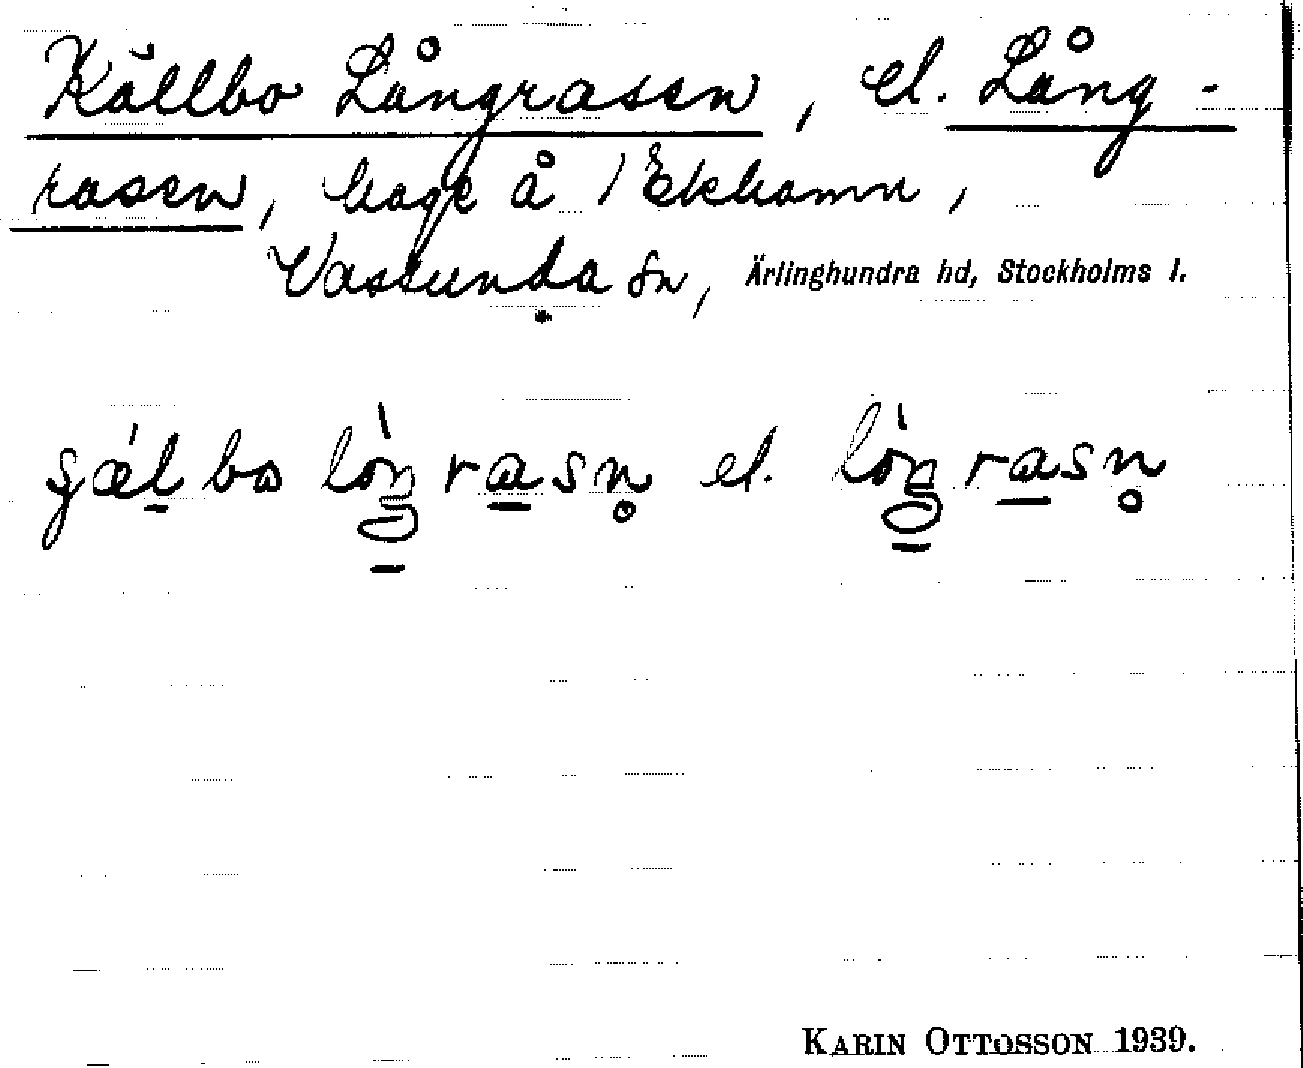 Källbo Långrasen, el. Lång-
rasen, hage å 1 Ekhamn,
Vassunda sn, Ärlinghundra hd, Stockholms l.
el.
KARIN OTTOSSON 1939.